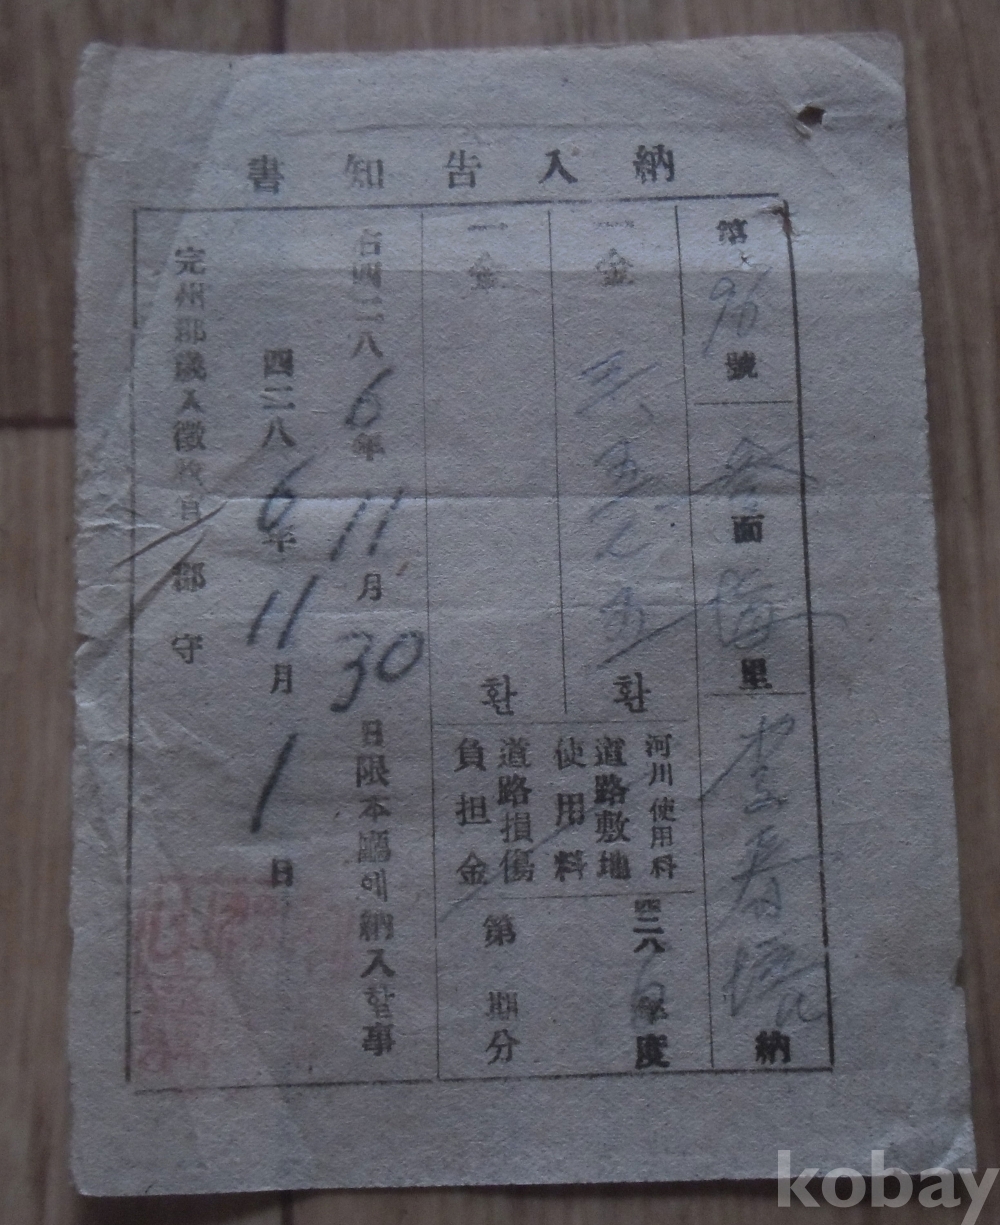 納入告知書
第 號
面
里
李春
納
一金 三、五 五 환
河川使用料
道路敷地
使用料
四二八6年度
一金 환
道路損傷
負担金
第 期分
右四二八6年11月30日限本廳에納入할事
四二八6年11月1日
完州郡歲入徵收官 郡守
kobay